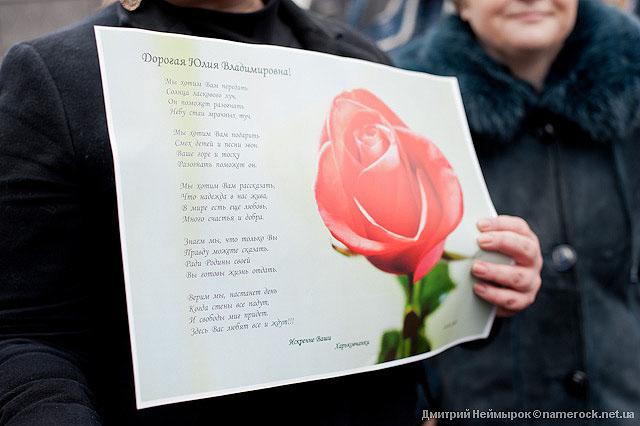 Дорогая Юлия Владимировна!
Мы хотим Вам передать
Солнца ласкового луч,
Он поможет разогнать
Небу стаи мрачных туч.
Мы хотим Вам подарить
Смех детей и песни звон.
Ваше горе и тоску
Разогнать поможет он.
Мы хотим Вам рассказать,
Что надежда в нас жива,
В мире есть еще любовь,
Много счастья и добра.
Знаем мы, что только Вы
Правду можете сказать.
Ради Родины своей
Вы готовы жизнь отдать.
Верим мы, настанет день
Когда стены все падут,
И свободы миг придет,
Здесь Вас любят все и ждут!!!
Искренне Ваши
Харьковчанки
Дмитрий Неймырок©namerock.net.ua